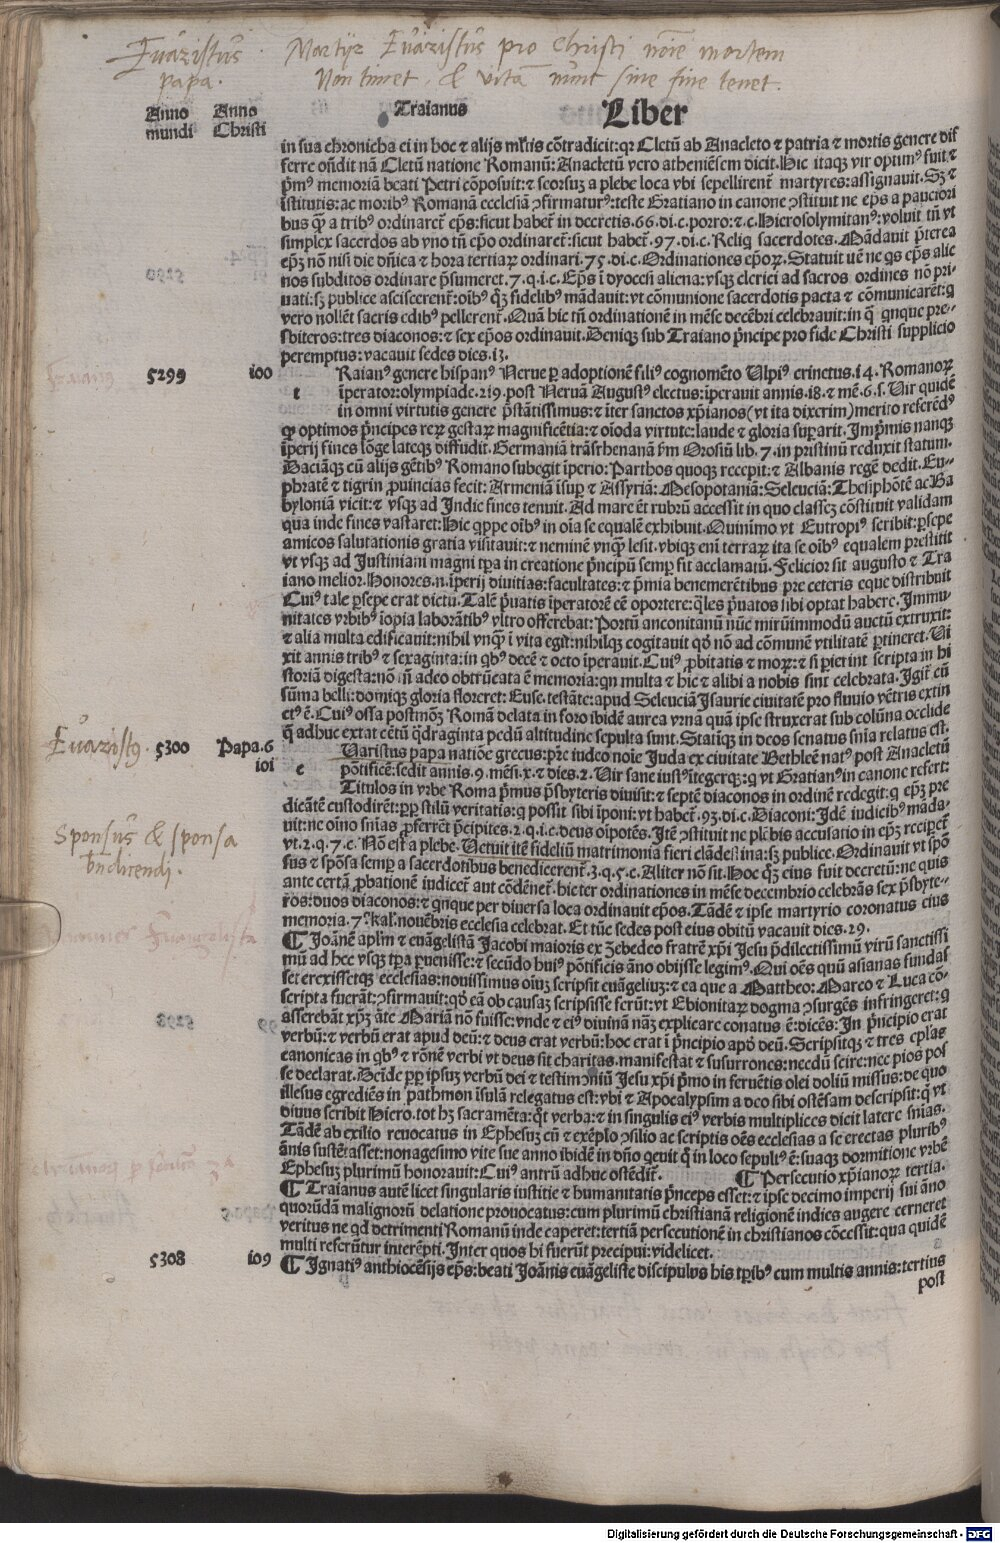 Euaristus Martyr Euaristus pro Christi noīe mortem
papa. Non timet, & vitā nunc sine fine tenet.
Anno Anno Traianus Liber
mundi Christi
in sua chronicha ei in hoc ⁊ alijs ml'tis cōtradicit: qꝛ Cletū ab Anacleto ⁊ patria ⁊ mortis genere dif
ferre oñdit nā Cletū natione Romanū: Anacletū vero atheniēsem dicit. Hic itaqꝫ vir optimꝰ fuit ⁊
p̄mꝰ memoriā beati Petri cōposuit: ⁊ seorsuꝫ a plebe loca vbi sepellirent martyres: assignauit. Sꝫ ⁊
īstitutis: ac moribꝰ Romanā ecclesiā ꝯfirmaturꝰ: teste Gratiano in canone ꝯstituit ne ep̄s a pauciori
bus qꝫ a tribꝰ ordinaret ep̄s: sicut habet in decretis. 66. di. c. porro: ⁊. c. Hierosolymitanꝰ: voluit tñ vt
simplex sacerdos ab vno tñ ep̄o ordinaret: sicut habet. 97. di. c. Reliq sacerdotes. Mādauit p̄terea
ep̄ꝫ nō nisi die dñica ⁊ hora tertiaꝝ ordinari. 75. di. c. Ordinationes ep̄oꝝ. Statuit uē ne qs ep̄s alie
nos subditos ordinare p̄sumeret. 7. q. i. c. Ep̄s ī dyocesi aliena: vsqꝫ clerici ad sacros ordines nō pri-
uati: sꝫ publice asciscerent: oībꝰ qꝫ fidelibꝰ mādauit: vt cōmunione sacerdotis pacta ⁊ cōmunicarēt: q
vero nollēt sacris edibꝰ pellerent. Quā hic tñ ordinationē in mēse decēbri celebrauit: in q̄ qnque pre-
sbiteros: tres diaconos: ⁊ sex ep̄os ordinauit. Deniqꝫ sub Traiano p̄ncipe pro fide Christi supplicio
peremptus: vacauit sedes dies. 13.
5299 100 Raianꝰ genere hispanꝰ Nerue ꝑ adoptionē filiꝰ cognomēto Ulpiꝰ crinetus. 14. Romanoꝝ
t īperator: olympiade. 219. post Neruā Augustꝰ electus: īperauit annis. 18. ⁊ mē. 6. s. Uir quidē
in omni virtutis genere p̄stātissimus: ⁊ īter sanctos xp̄ianos (vt ita dixerim) merito referēdꝰ
qꝫ optimos p̄ncipes reꝝ gestaꝝ magnificētia: ⁊ oīoda virtute: laude ⁊ gloria suꝑarit. Imp̄mis nanqꝫ
īperij fines lōge lateqꝫ diffudit. Germaniā trāsrhenanā ẜm Orosiū lib. 7. in pristinū reduxit statum.
Daciāqꝫ cū alijs gētibꝰ Romano subegit īperio: Parthos quoqꝫ recepit: ⁊ Albanis regē dedit. Eu-
phratē ⁊ tigrin ꝓuincias fecit: Armeniā īsuꝑ ⁊ Assyriā: Mesopotaniā: Seleuciā: Thesiphōtē ac Ba
byloniā vicit: ⁊ vsqꝫ ad Indie fines tenuit. Ad mare ēt rubrū accessit in quo classeꝫ cōstituit validam
qua inde fines vastaret: Hic qppe oībꝰ in oīa se equalē exhibuit. Quinimo vt Eutropiꝰ scribit: ꝑsepe
amicos salutationis gratia visitauit: ⁊ neminē vnqꝫ lesit. vbiqꝫ eni terraꝝ ita se oībꝰ equalem prestitit
vt vsqꝫ ad Justiniani magni tp̄a in creatione p̄ncipū semꝑ sit acclamatū. Felicior sit augusto ⁊ Tra
iano melior. Honores. n. īperij diuitias: facultates: ⁊ p̄mia benemerētibus pre ceteris eque distribuit
Cuiꝰ tale ꝑsepe erat dictū. Talē p̄uatis īperatorē eē oportere: qles p̄uatos sibi optat habere. Immu-
nitates vrbibꝰ īopia laborātibꝰ vltro offerebat: Portū anconitanū nūc mirūimmodū auctū extruxit:
⁊ alia multa edificauit: nihil vnqꝫ ī vita egit: nihilqꝫ cogitauit qd nō ad cōmunē vtilitatē ꝑtineret. Ui
xit annis tribꝰ ⁊ sexaginta: in qbꝰ decē ⁊ octo īperauit. Cuiꝰ ꝓbitatis ⁊ moꝝ: ⁊ si ꝑierint scripta in hi
storiā digesta: nō tñ adeo obtrūcata ē memoria: qn multa ⁊ hic ⁊ alibi a nobis sint celebrata. Igit cū
sūma belli: domiqꝫ gloria floreret: Euse. testāte: apud Seleuciā Isaurie ciuitatē pro fluuio vētris extin
ctꝰ ē. Cuiꝰ ossa postmoꝫ Romā delata in foro ibidē aurea vrna quā ipse struxerat sub colūna occlide
q̄ adhuc extat cētū q̄draginta pedū altitudine sepulta sunt. Statimqꝫ in deos senatus snīa relatus est.
Euaristꝰ. 5300 Papa. 6 Uaristus papa natiōe grecus: pr̄e iudeo noīe Juda ex ciuitate Bethleē natꝰ post Anacletū
101 e pōtificē: sedit annis. 9. mēsi. x. ⁊ dies. 2. Uir sane iustꝰ ītegerqꝫ: q vt Gratianꝰ in canone refert:
Titulos in vrbe Roma p̄mus p̄sbyteris diuisit: ⁊ septē diaconos in ordinē redegit: q ep̄ꝫ pre
Sponsus & sponsa dicātē custodirēt: ꝓp̄ stilū veritatis: q possit sibi īponi: vt habet. 93. di. c. Diaconi: Idē iudicibꝰ māda-
benedicendi. uit: ne oīno snīas ꝓferrēt p̄cipites. 2. q. i. c. deus oīpotēs. Itē ꝯstituit ne plebis accusatio in ep̄ꝫ reciperet
vt. 2. q. 7. c. Nō est a plebe. Uetuit itē fideliū matrimonia fieri clādestina: sꝫ publice. Ordinauit vt spō
sus ⁊ spōsa semꝑ a sacerdotibus benedicerent. 3. q. 5. c. Aliter nō sit. Hoc qꝫ eius fuit decretū: ne quis
ante certā ꝓbationē iudicet aut cōdēnet: hic ter ordinationes in mēse decembrio celebrās sex p̄sbyte-
ros: duos diaconos: ⁊ qnque per diuersa loca ordinauit ep̄os. Tādē ⁊ ipse martyrio coronatus eius
memoria. 7. kal'. nouēbris ecclesia celebrat. Et tūc sedes post eius obitū vacauit dies. 29.
Ioannes Euangelista ¶ Joānē apl'm ⁊ euāgelistā Jacobi maioris ex Zebedeo fratrē xp̄i Jesu p̄dilectissimū virū sanctissi
mū ad hec vsqꝫ tp̄a ꝑuenisse: ⁊ secūdo huiꝰ pōtificis āno obijsse legimꝰ. Qui oēs quū asianas fundas
set erexissetqꝫ ecclesias: nouissimus oīuꝫ scripsit euāgeliuꝫ: ⁊ ea que a Mattheo: Marco ⁊ Luca cō-
scripta fuerāt: ꝯfirmauit: qd eā ob causaꝫ scripsisse ferūt: vt Ebionitaꝝ dogma ꝯsurgēs infringeret: q
asserebāt xp̄ꝫ āte Mariā nō fuisse: vnde ⁊ eiꝰ diuinā naꝫ explicare conatus ē: dicēs: In p̄ncipio erat
verbū: ⁊ verbū erat apud deū: ⁊ deus erat verbū: hoc erat ī p̄ncipio apō deū. Scripsitqꝫ ⁊ tres ep̄las
canonicas in qbꝰ ⁊ rōnē verbi vt deus sit charitas. manifestat ⁊ susurrones: necdū scire: nec pios pos
se declarat. Deīde ꝓp̄ ipsuꝫ verbū dei ⁊ testimoniū Jesu xp̄i p̄mo in feruētis olei doliū missus: de quo
illesus egrediēs in pathmon īsulā relegatus est: vbi ⁊ Apocalypsim a deo sibi ostēsam descripsit: q̄ vt
diuus scribit Hiero. tot hꝫ sacramēta: qt verba: ⁊ in singulis eiꝰ verbis multiplices dicit latere snīas.
Tādē ab exilio reuocatus in Ephesuꝫ cū ⁊ exēplo ꝯsilio ac scriptis oēs ecclesias a se erectas pluribꝰ
ānis sustētasset: nonagesimo vite sue anno ibidē in dño qeuit q̄ in loco sepultꝰ ē: suaqꝫ dormitione vrbē
Ephesuꝫ plurimū honorauit: Cuiꝰ antrū adhuc ostēdit. ¶ Persecutio xp̄ianoꝝ tertia.
¶ Traianus autē licet singularis iustitie ⁊ humanitatis p̄nceps esset: ⁊ ipse decimo imperij sui āno
quorūdā malignorū delatione prouocatus: cum plurimū christianā religionē indies augere cerneret
veritus ne qd detrimenti Romanū inde caperet: tertiā persecutionē in christianos cōcessit: qua quidē
multi referūtur interēpti. Inter quos hi fuerūt precipui: videlicet.
5308 109 ¶ Ignatiꝰ anthiocēsijs ep̄s: beati Joānis euāgeliste discipulos his tp̄ibꝰ cum multis annis: tertius
post
Digitalisierung gefördert durch die Deutsche Forschungsgemeinschaft - DFG